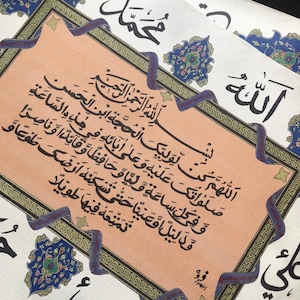 محمد
الله
بسم الله الرحمن الرحيم
اللهم كن لوليك الحجة ابن الحسن
صلواتك عليه وعلى آبائه في هذه الساعة
وفي كل ساعة وليا وحافظا وقائدا وناصرا
ودليلا وعينا حتى تسكنه أرضك طوعا و
تمتعه فيها طويلا
علي